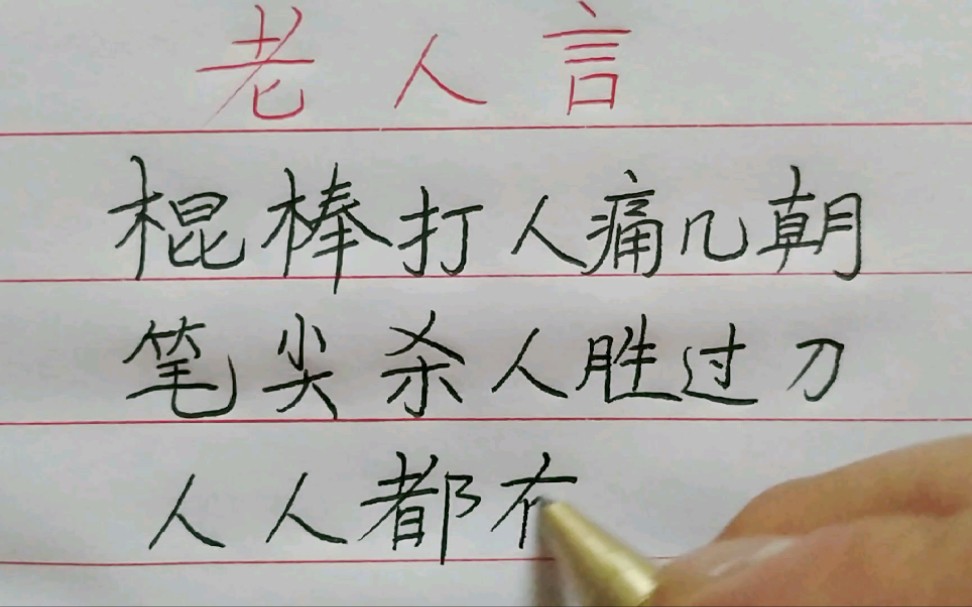 老人言
棍棒打人痛几朝
笔尖杀人胜过刀
人人都